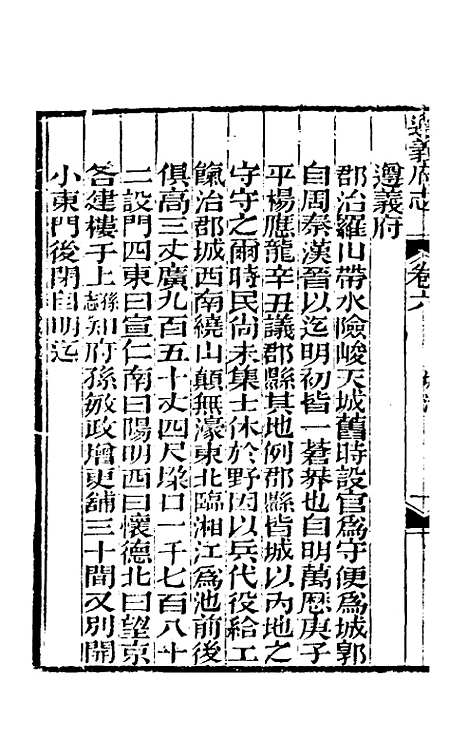 遵義府志
卷六
遵義府
郡治羅山帶水險峻天城舊時設官為守便為城郭
自周秦漢晉以迄明初皆一莽莽也自明萬歷庚子
平楊應龍辛丑議郡縣其地例郡縣皆城以內地之
守守之爾時民尚未集士休於野因以兵代役給工
餼治郡城西南繞山巔無濠東北臨湘江為池前後
俱高三丈廣九百五十丈四尺垜口一千七百八十
二設門四東曰宣仁南曰陽明西曰懷德北曰望京
各建樓于上孫志知府孫敏政增更舖三十間又別開
小東門後閉自明迄